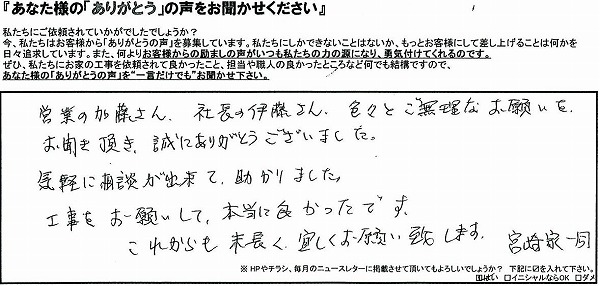 『あなた様の「ありがとう」の声をお聞かせください』
私たちにご依頼されていかがでしたでしょうか?
今、私たちはお客様から「ありがとうの声」を募集しています。私たちにしかできないことはないか、もっとお客様にして差し上げることは何かを
日々追求しています。また、何よりお客様からの励ましの声がいつも私たちの力の源になり、勇気付けてくれるのです。
ぜひ、私たちにお家の工事を依頼されて良かったこと、担当や職人の良かったところなど何でも結構ですので、
あなた様の「ありがとうの声」を“一言だけでも”お聞かせ下さい。
営業の加藤さん、社長の伊藤さん、色々とご無理なお願いを、
お聞き頂き、誠にありがとうございました。
気軽に相談が出来て、助かりました。
工事をお願いして、本当に良かったです。
これからも末長く、宜しくお願い致します。宮崎家一同
※HPやチラシ、毎月のニュースレターに掲載させて頂いてもよろしいでしょうか? 下記に☑を入れて下さい。
☑はい □イニシャルならOK □ダメ